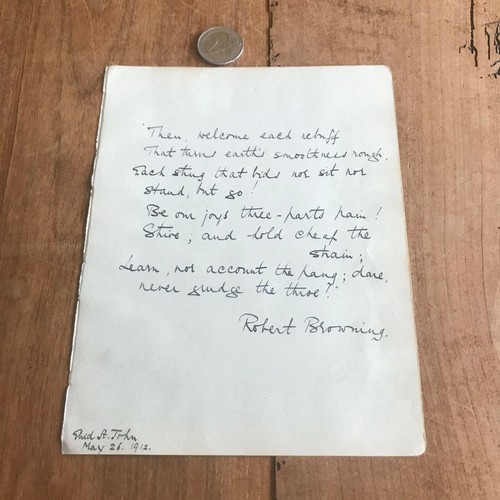 "Then, welcome each rebuff
That turns earth's smoothness rough,
Each sting that bids nor sit nor
stand, but go!
Be our joys three-parts pain!
Strive, and hold cheap the
strain;
Learn, nor account the pang; dare,
never grudge the throe!"
Robert Browning.
Enid St. John
May 26. 1912.